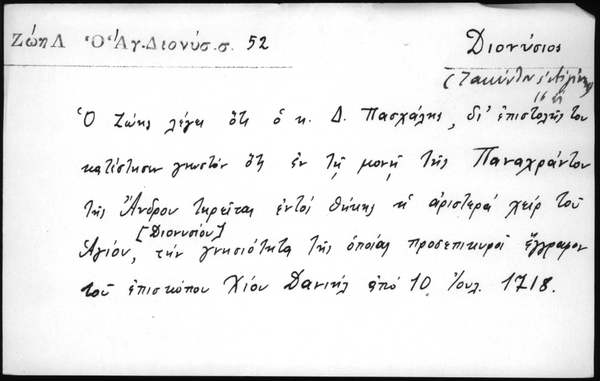 Ζώη Λ Ὁ Ἅγ. Διονύσ. σ. 52
Διονύσιος
(Ζακύνθου & Αἰγίνης)
16 αἰ
Ὁ Ζώης λέγει ὅτι ὁ κ. Δ. Πασχάλης, δι' ἐπιστολῆς του
κατέστησεν γνωστόν ὅτι ἐν τῇ μονῇ τῆς Παναχράντου
τῆς Ἄνδρου τηρεῖται ἐντός θήκης ἡ ἀριστερά χείρ τοῦ
Ἁγίου, [Διονυσίου] τήν γνησιότητα τῆς ὁποίας προσεπικυροῖ ἔγγραφον
τοῦ ἐπισκόπου Χίου Δανιήλ ἀπό 10 Ἰουλ. 1718.